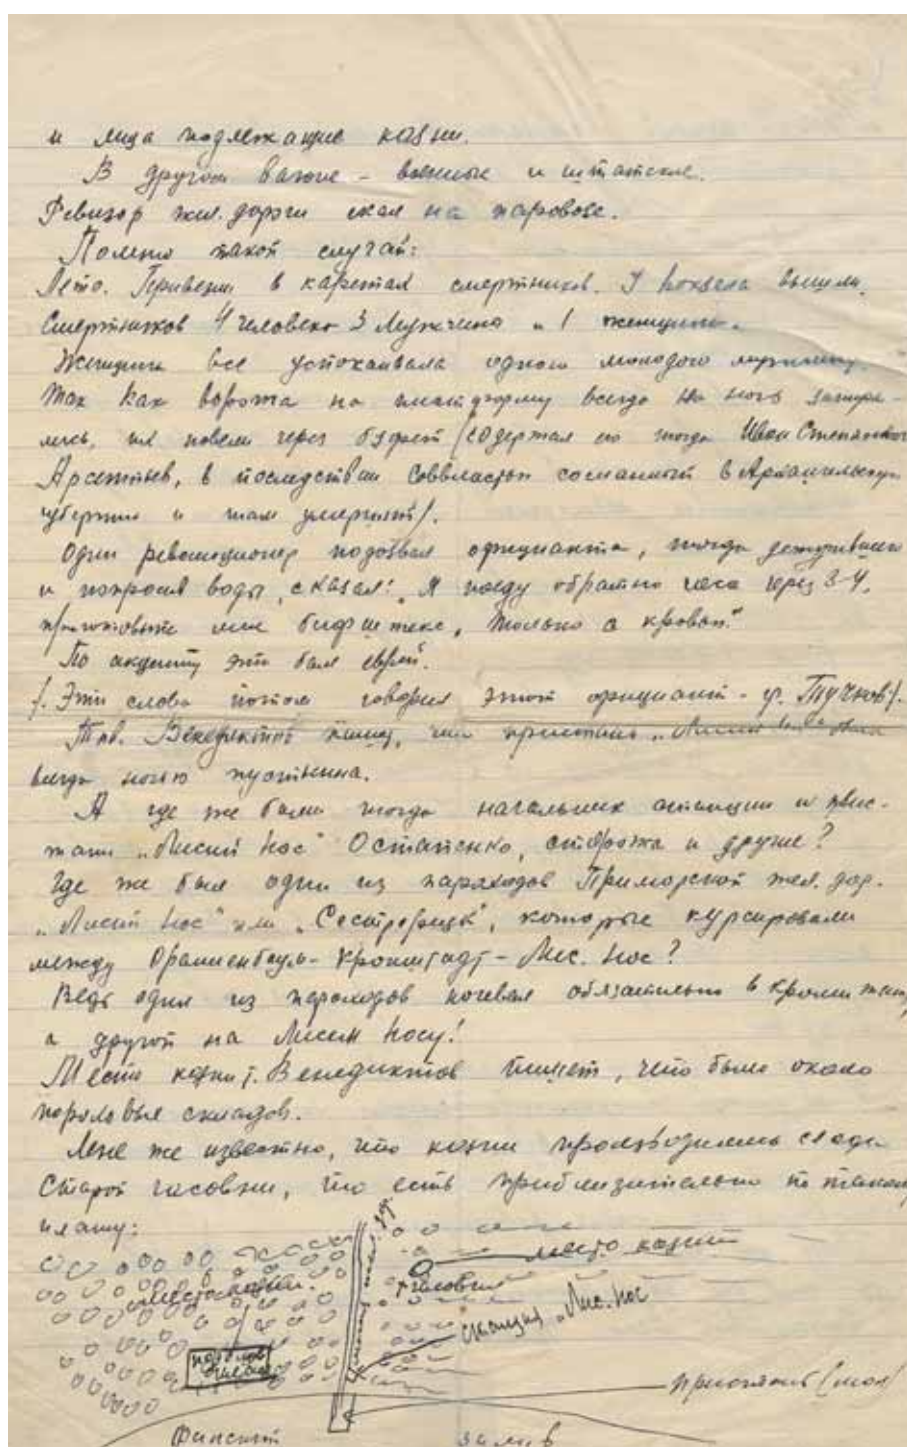 и лица подлежащие казни.
В другом вагоне – военные и штатские.
Ревизор жел. дороги ехал на паровозе.
Помню такой случай:
Лето. Привезли в каретах смертников. У вокзала вышли.
Смертников 4 человека 3 мужчина и 1 женщина.
Женщина все успокаивала одного молодого мужчину.
Так как ворота на платформу всегда на ночь запира-
лись, их повели через буфет (содержал его тогда Иван Степанович
Арсентьев, в последствии Соввластью сосланный в Архангельскую
губернию и там умерший).
Один революционер подозвал официанта, тогда дежурившего
и попросив воды, сказал: "Я поеду обратно часа через 3-4,
приготовьте мне бифштекс, только с кровью."
По акценту это был еврей.
/. Эти слова потом говорил этот официант – гр. Тучков/.
Тов. Венедиктов пишет, что пристань "Лисий
всегда ночью пустынна.
А где же были тогда начальник станции и прис-
тани "Лисий Нос" Остапенко, сторожа и другие?
Где же был один из пароходов Приморской жел. дор.
"Лисий Нос" или "Сестрорецк", которые курсировали
между Ораниенбаум – Кронштадт – Лис. Нос?
Ведь один из пароходов ночевал обязательно в
а другой на Лисьем Носу!
Место казни т. Венедиктов пишет, что было около
пороховых складов.
Мне же известно, что казни производились сзади
старой часовни, то есть приблизительно по такому
плану:
место казни
часовня
станция "Лис. Нос
порохов
пристань (мол)
Финский залив